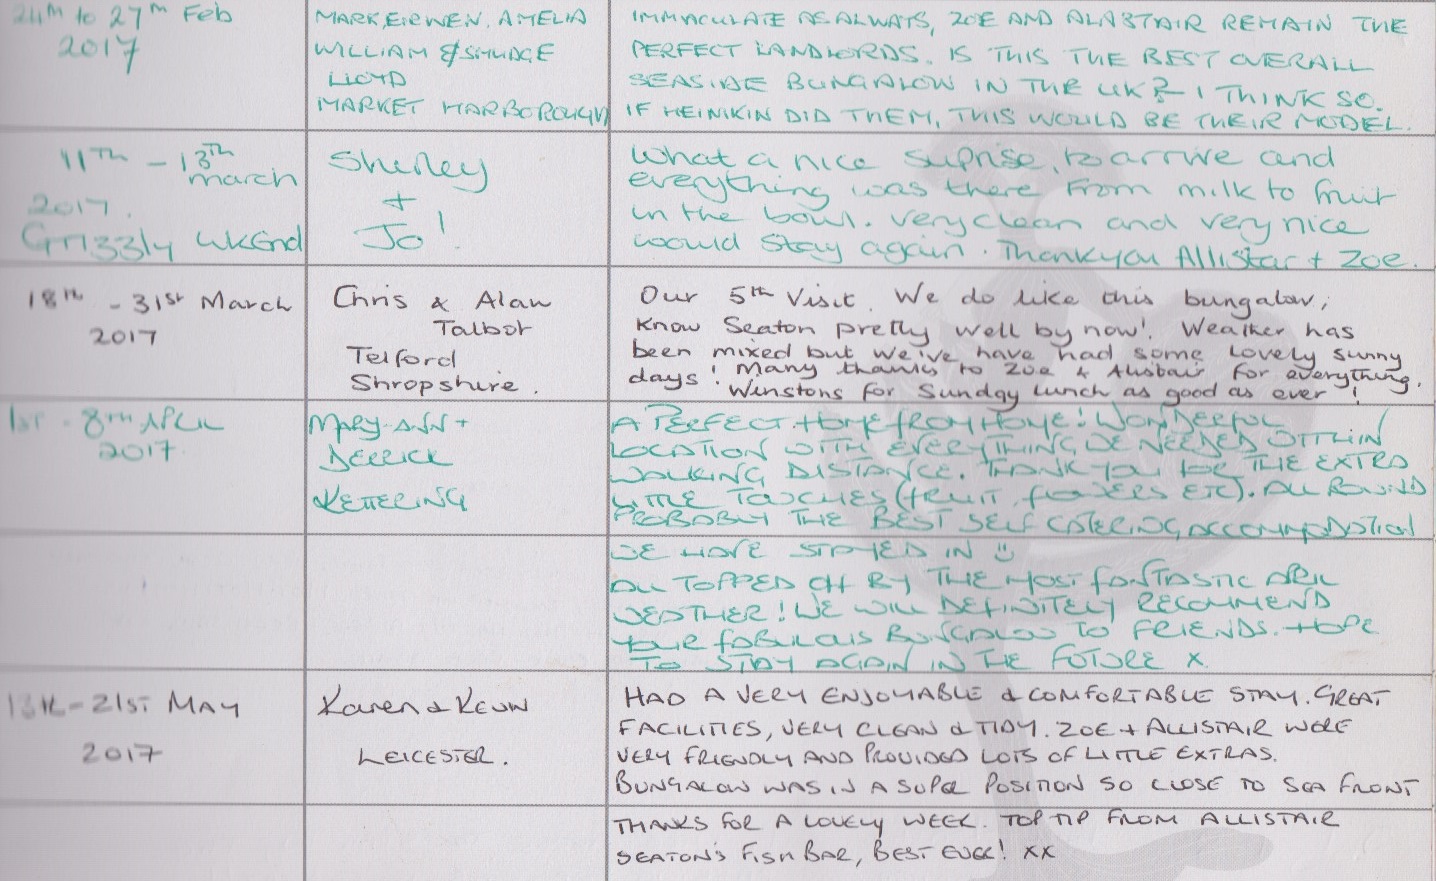 24th to 27th Feb
2017
MARK, EIRWEN, AMELIA
WILLIAM & SMUDGE
LLOYD
MARKET HARBOROUGH
IMMACULATE AS ALWAYS, ZOE AND ALASTAIR REMAIN THE
PERFECT LANDLORDS. IS THIS THE BEST OVERALL
SEASIDE BUNGALOW IN THE UK? I THINK SO.
IF HEINIKIN DID THEM, THIS WOULD BE THEIR MODEL.
11TH - 13th
march
2017.
WKEnd
Shirley
+
Jo!
What a nice suprise, to arrive and
everything was there from milk to fruit
in the bowl. very clean and very nice
would stay again. Thankyou Allistar + Zoe.
18th - 31st March
2017
Chris & Alan
Talbot
Telford
Shropshire.
Our 5th Visit. We do like this bungalow,
know Seaton pretty well by now! Weather has
been mixed but we've have had some lovely sunny
days! Many thanks to Zoe & Alistair for everything.
Winstons for Sunday lunch as good as ever!
1st - 8TH APRIL
2017
MARY-ANN +
DERRICK
KETTERING
A PERFECT HOME FROM HOME! WONDERFUL
LOCATION WITH EVERYTHING WE NEEDED WITHIN
WALKING DISTANCE. THANK YOU FOR THE EXTRA
LITTLE TOUCHES (FRUIT, FLOWERS ETC). ALL ROUND
PROBABLY THE BEST SELF CATERING ACCOMMODATION
WE HAVE STAYED IN ☺
ALL TOPPED OFF BY THE MOST FANTASTIC APRIL
WEATHER! WE WILL DEFINITELY RECOMMEND
YOUR FABULOUS BUNGALOW TO FRIENDS. HOPE
TO STAY AGAIN IN THE FUTURE X
- 21ST MAY
2017
Karen & Kevin
LEICESTER.
HAD A VERY ENJOYABLE & COMFORTABLE STAY. GREAT
FACILITIES, VERY CLEAN & TIDY. ZOE + ALLISTAIR WERE
VERY FRIENDLY AND PROVIDED LOTS OF LITTLE EXTRAS.
BUNGALOW WAS IN A SUPER POSITION SO CLOSE TO SEA FRONT
THANKS FOR A LOVELY WEEK. TOP TIP FROM ALLISTAIR
SEATON'S FISH BAR, BEST EVER! XX